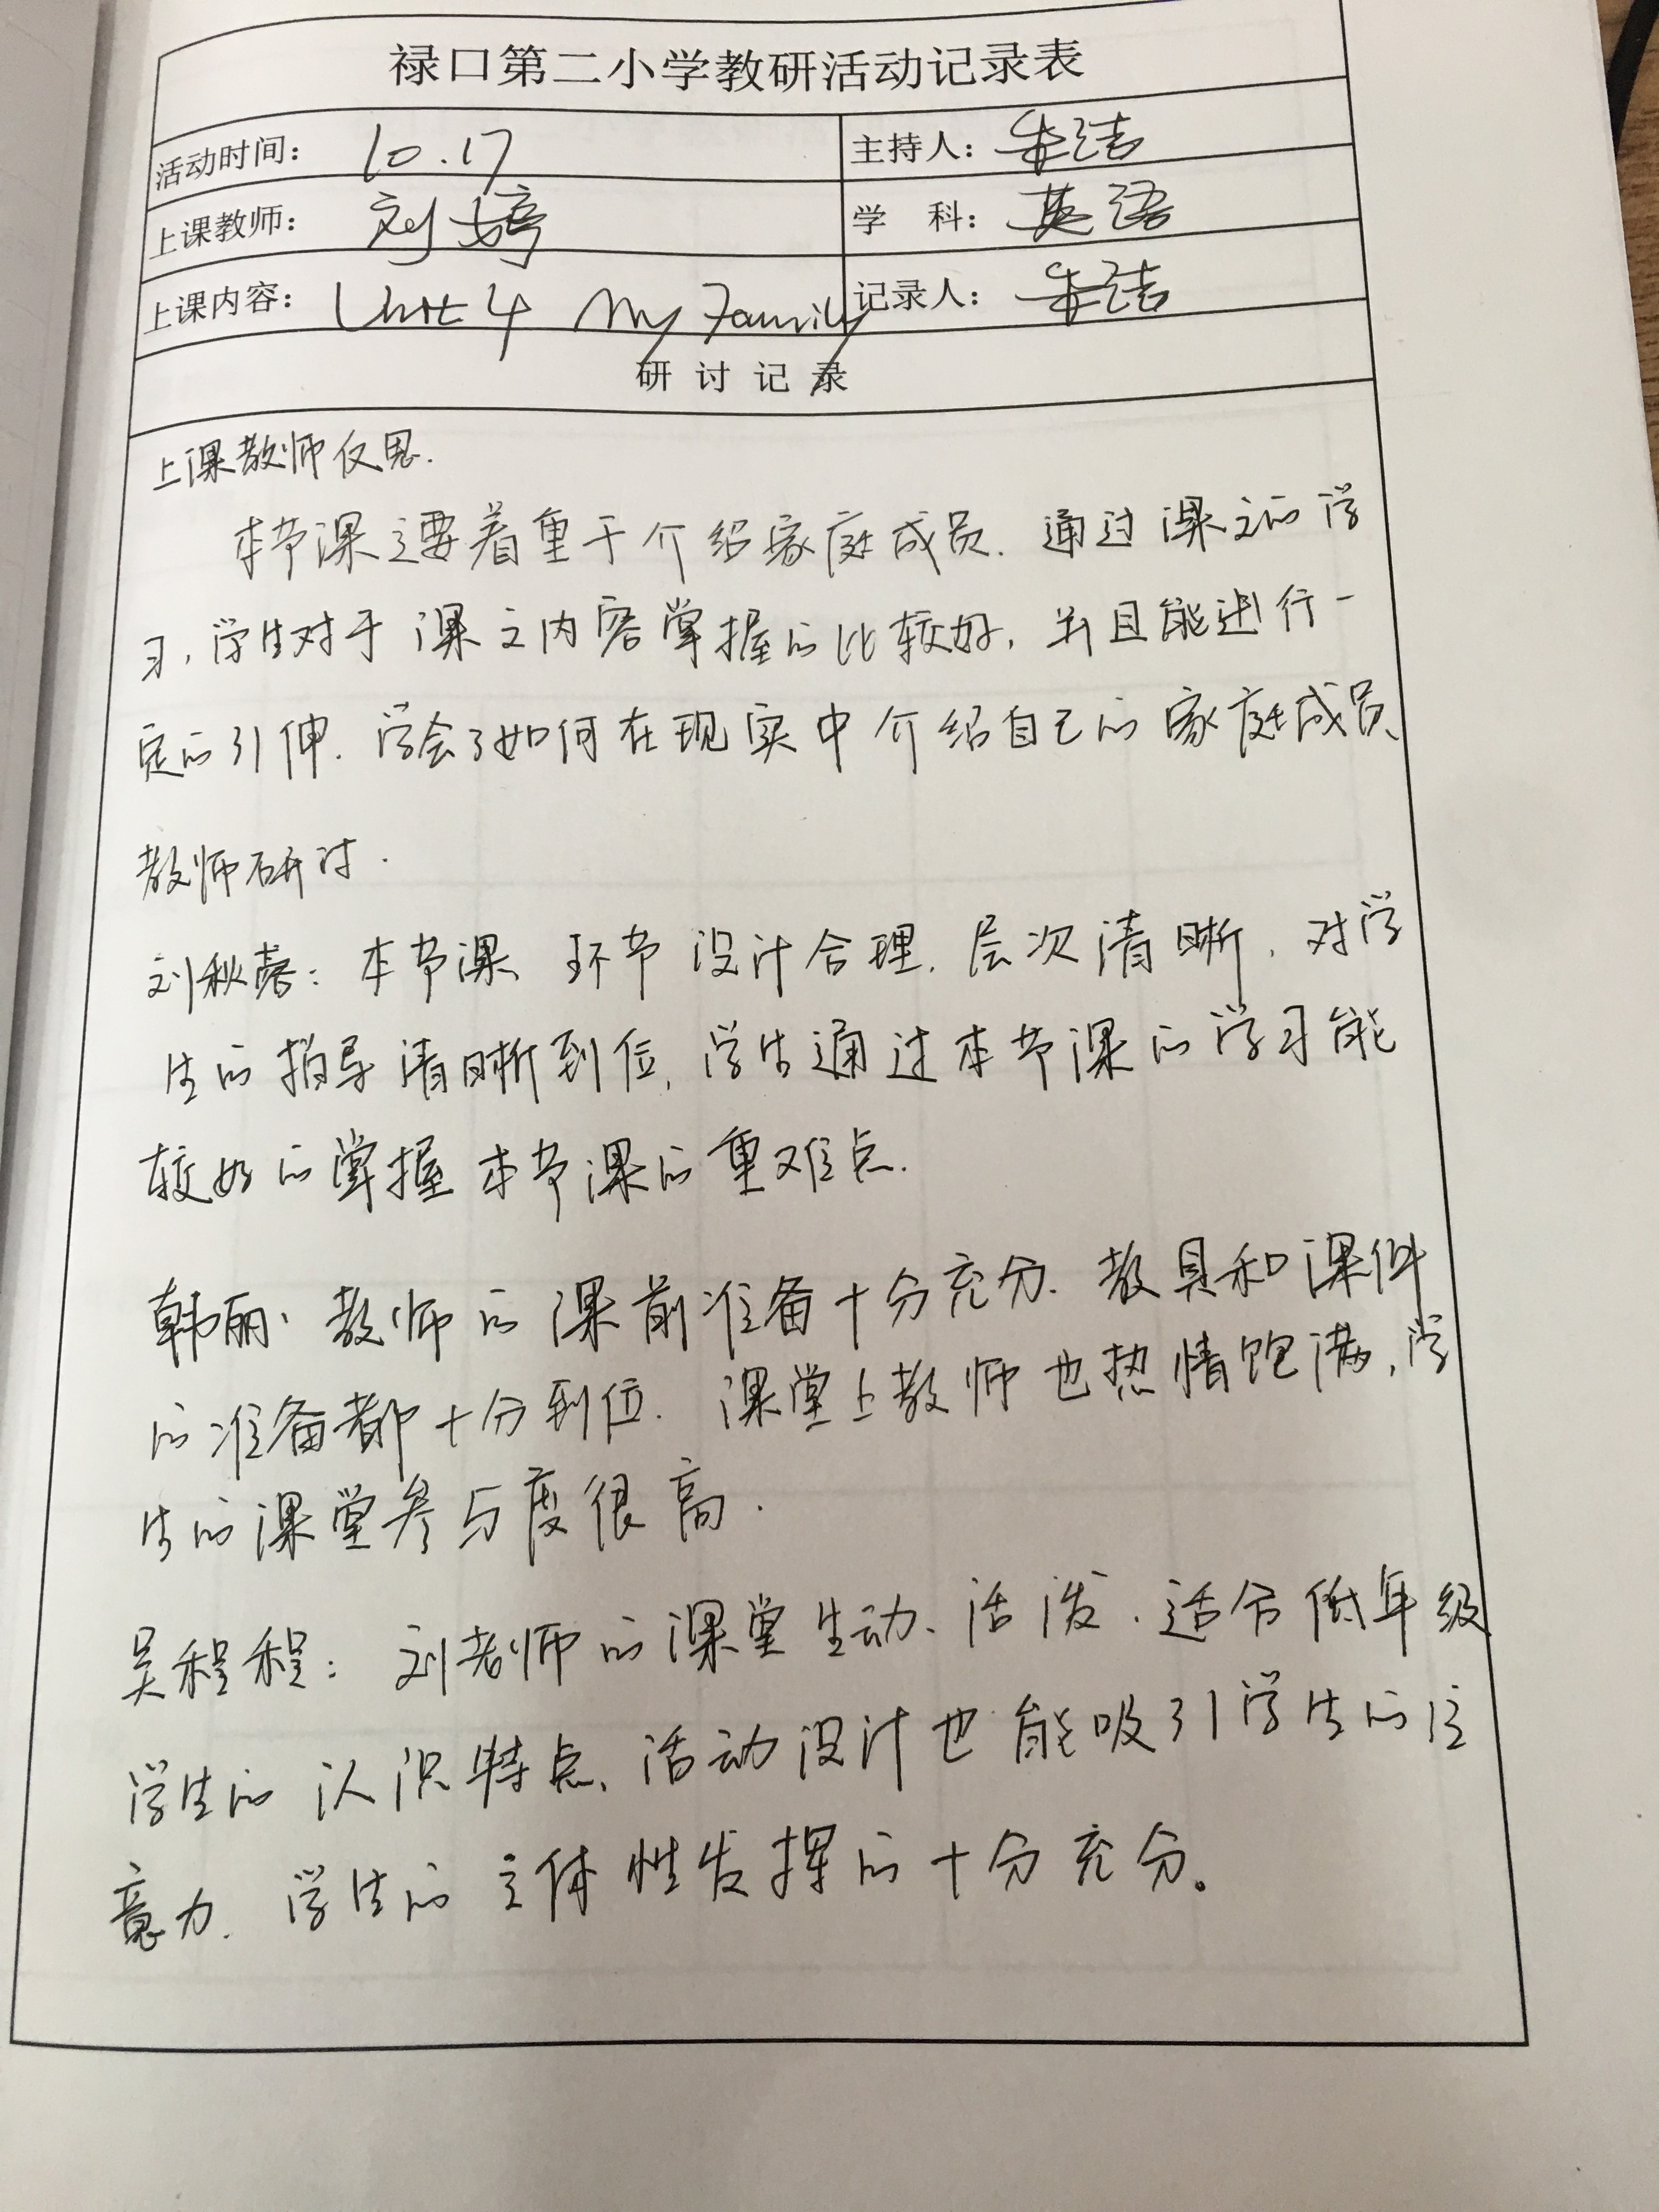 禄口第二小学教研活动记录表
活动时间： 10.17 主持人： 朱洁
上课教师： 刘婷 学 科： 英语
上课内容： Unit 4 My Family 记录人： 朱洁
研 讨 记 录
上课教师反思.
本节课主要着重于介绍家庭成员. 通过课文的学
习，学生对于课文内容掌握的比较好，并且能进行一
定的引伸. 学会了如何在现实中介绍自己的家庭成员、
教师研讨.
刘秋馨： 本节课、环节设计合理. 层次清晰. 对学
生的指导清晰到位，学生通过本节课的学习能
较好的掌握本节课的重难点.
韩丽、教师的课前准备十分充分. 教具和课件
的准备都十分到位. 课堂上教师也热情饱满，学
生的课堂参与度很高.
吴程程： 刘老师的课堂生动、活泼. 适合低年级
学生的认识特点、活动设计也能吸引学生的注
意力. 学生的主体性发挥的十分充分。